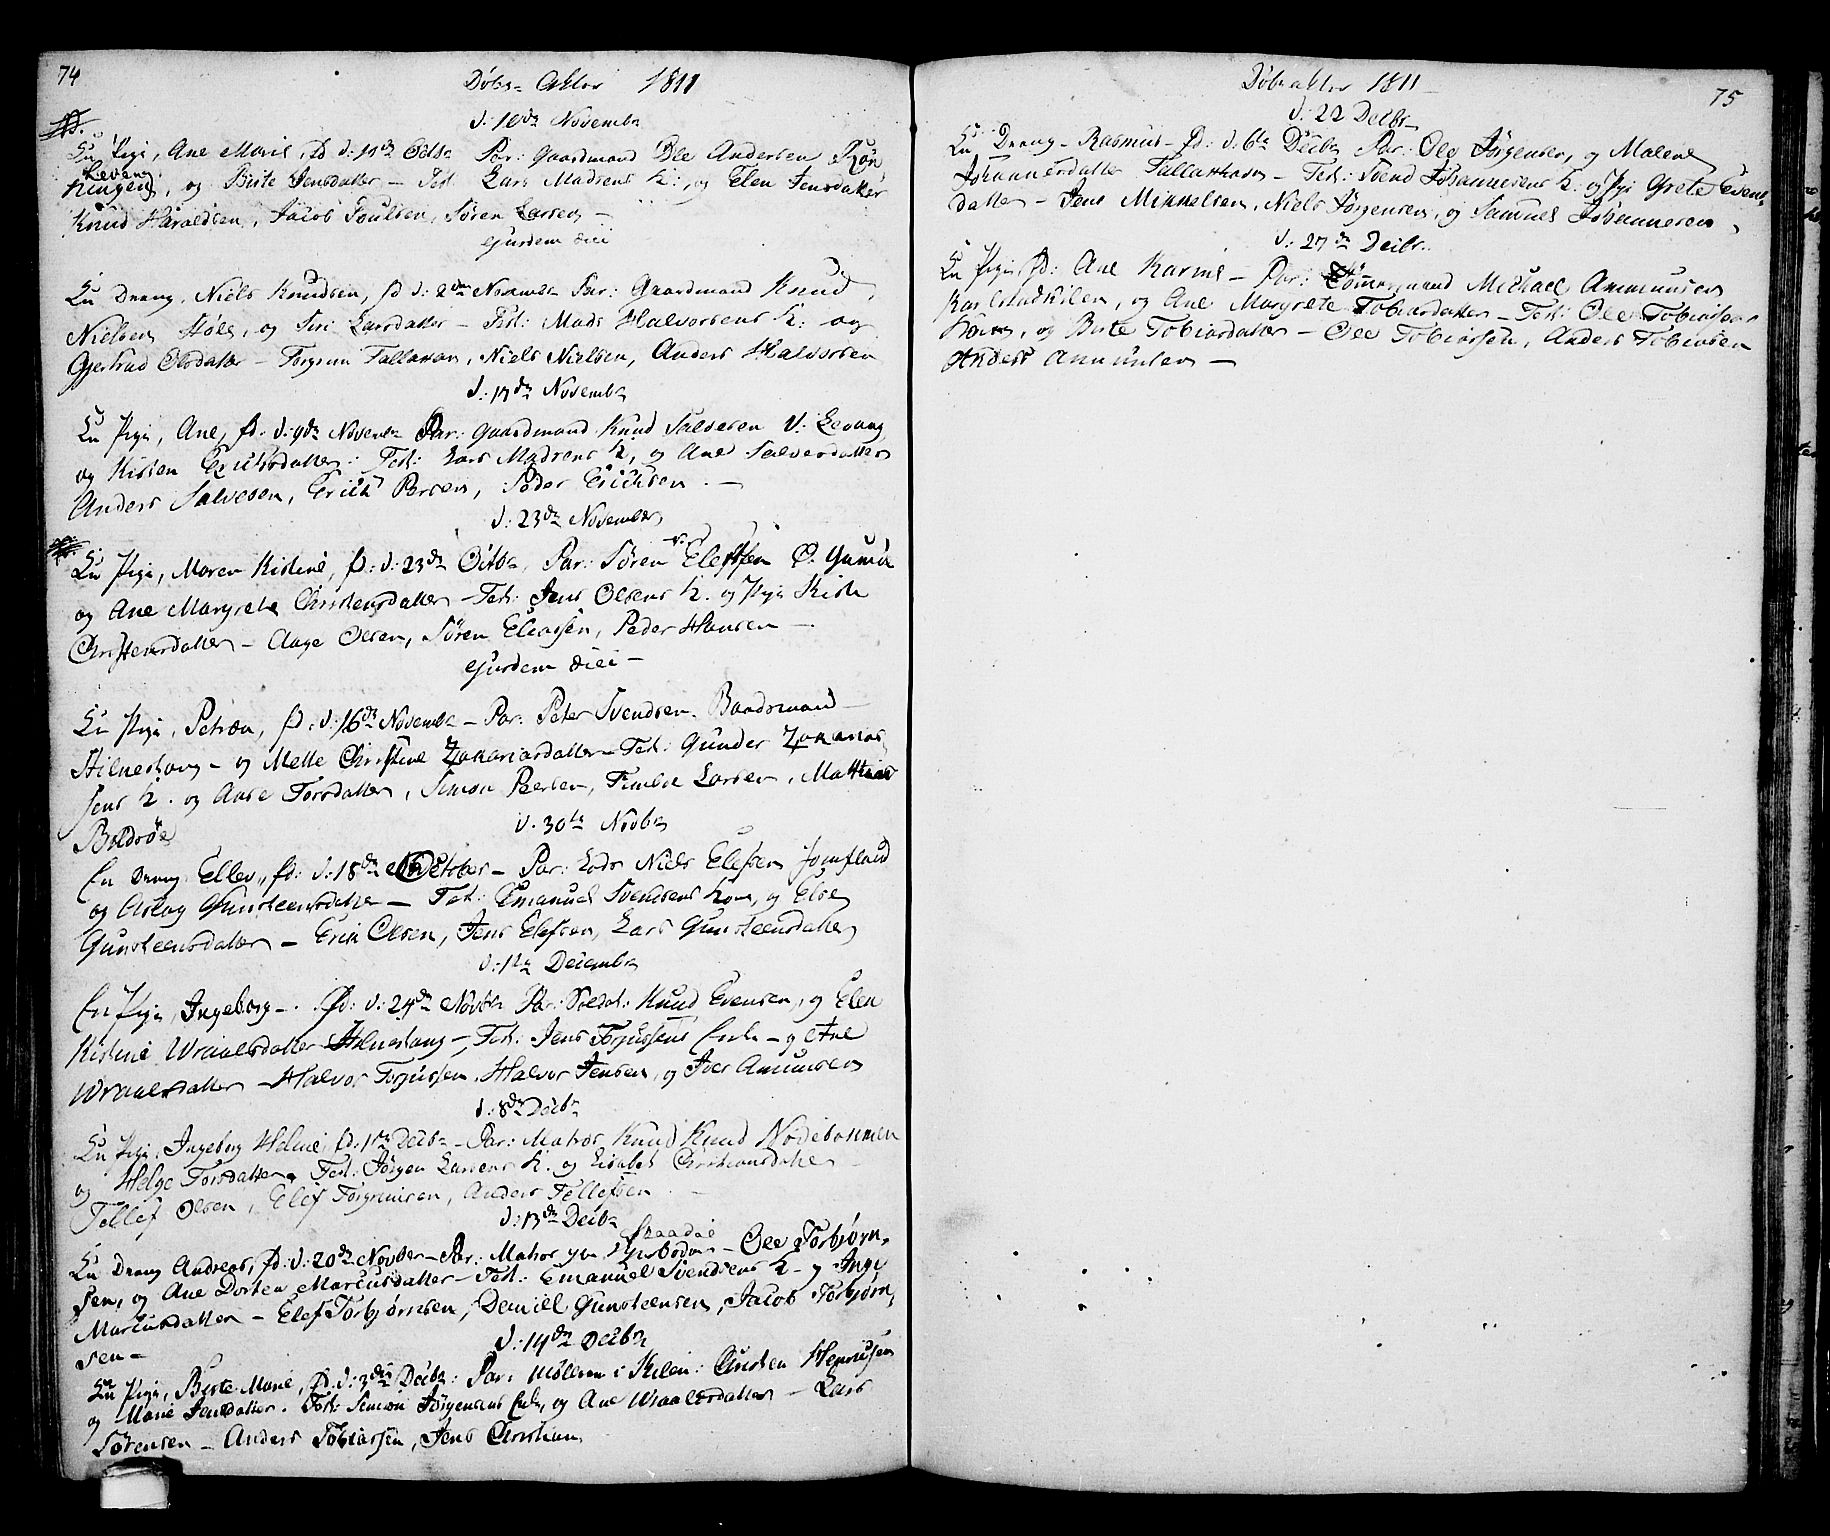 74
Døbs- Akter 1811
d: 10de Novembr
En Pige, Ane Marie, fd d: 11de Octbr Par: Gaardmand Ole Andersen
Levang
, og Birte Jensdatter - Test. Lars Madsens K:, og Elen Jensdatter
Knud Haraldsen, Jacob Poulsen, Sören Larsen -
ejusdem diei
En Dreng, Niels Knudsen, fd d: 2den Novembr Par: Gaardmand Knud
Nielsen Höle, og Siri Larsdatter - Test: Mads Halvorsens K: og
Gjertrud Olsdatter - Torgrim Tallaxsen, Niels Nielsen, Anders Halvorsen
d: 17de Novembr
En Pige, Ane, fd: d: 9de Novembr Par: Gaardmand Knud Salvesen V: Levang
og Kisten Erichsdatter: Test: Lars Madsens K, og Ane Salvesdatter
Anders Salvesen, Erich Persen, Peder Erichsen. -
d: 23de November
En Pige, Maren Kistine, fd: d: 23de Octbr, Par: Sören Elefsen
og Ane Margrete Christensdatter - Test: Jens Olsens K. og Pige Kisten
Christensdatter - Aage Olsen, Sören Eliassen, Peder Hansen -
ejusdem diei -
En Pige, Petrea, fd: d: 16de Novembr - Par: Peter Svendsen Baadsmand
Hilnestang - og Mette Christine Zakariasdatter - Test: Gunder Zakarias
sens K. og Anne Torsdatter, Simon Persen, Larsen, Matthias
Boldröe
d. 30te Novbr
En Dreng Ellev, fd: d: 18de October - Par: Lods Niels Elefsen Jomfland
og Aslaug Gunsteensdatter - Test: Emanuel Svendsens Kone, og Else
Gunsteensdatter - Erik Olsen, Jens Elefsen, Lars Gunsteensdatter
d: 1te Decembr
En Pige, Ingeborg -. fd: d: 24de Novbr Par: Soldat: Knud Evensen, og Elen
Kistine Wraalsdatter Hilnestang -, Test: Jens Torjussens Enke - og Ane
Wraalsdatter - Halvor Torjussen, Halvor Jensen, og Iver Amunsen
d: 8de Decbr
En Pige, Ingeborg Helene, fd: 1te Decbr - Par: Matros Knud Knud Nodeboemen
og Helge Torsdatter, Test: Jörgen Larsens K. og Lisabet Christiansdatter
Tellef Olsen, Elef Torgrimsen, Anders Tellefsen
d: 13de Decbr
Skaadöe
En Dreng Andreas, fd: d: 20de Novber - Par: Matros - Ole Torbjörn,
sen, og Ane Dortea Marcusdatter - Test: Emanuel Svendsens K - og Inge
Marcusdatter - Elef Torbjörnsen, Daniel Gunsteensen, Jacob Torbjörn,
sen -
d: 14de Decbr
En Pige, Birte Marie, fd. d: 3die Decbr: Par: Mölleren i Kilen: Christen Henriksen
og Marie Jensdatter. Test: Simon Jörgensens Enke, og Ane Wraalsdatter - Lars
Sörensen - Anders Tobiassen, Jens Christian

Döbsakter 1811
75
d: 22 Decbr
En Dreng - Rasmus - fd: d: 6te Decbr Par: Ole Jörgensen, og Malene
Johannesdatter Tallaxhavn - Test: Svend Johannesens K. og Pige Grete Svends-
datter - Jens Mikkelsen, Niels Jörgensen, og Samuel Johannesen,
d: 27de Decbr.
En Pige fd: Ane Karine - Par: Tömmermand Michael Ammunsen
Karlstadkilen, og Ane Margrete Tobiasdatter - Test: Ole Tobiassens
Kone, og Birte Tobiasdatter - Ole Tobiassen, Anders Tobiasen
Anders Ammunsen -